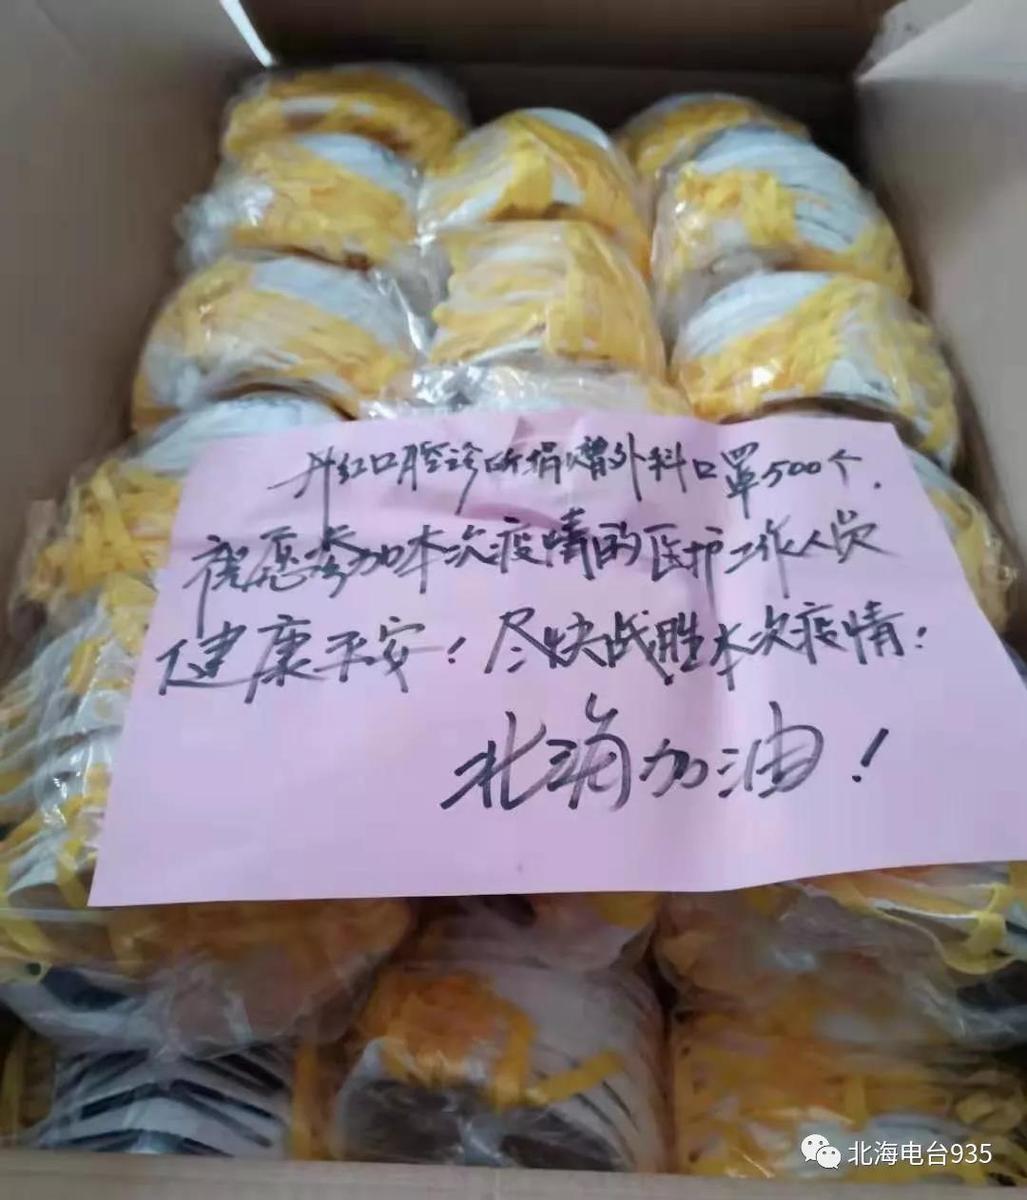 升红口腔诊所捐赠外科口罩500个.
祝愿参加本次疫情的医护工作人员
健康平安！尽快战胜本次疫情！
北海加油！
北海电台935